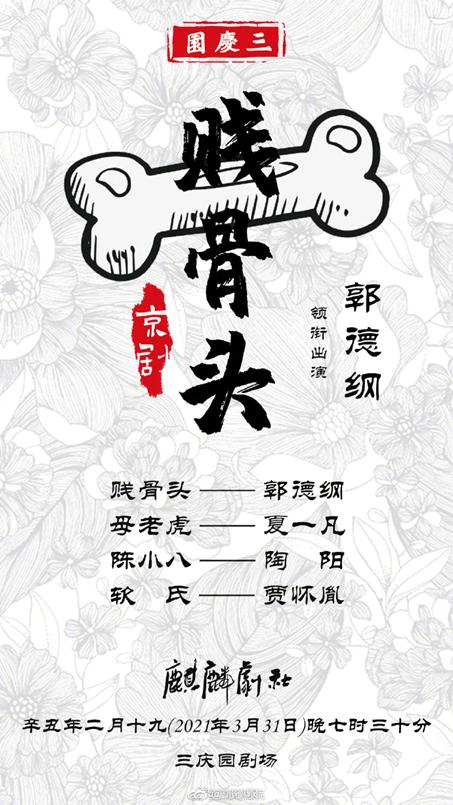 園慶三
贱骨头
京剧
郭德纲
领衔出演
贱骨头——郭德纲
母老虎——夏一凡
陈小八——陶　阳
软　氏——贾怀胤
麒麟劇社
辛丑年二月十九(2021年3月31日)晚七时三十分
三庆园剧场